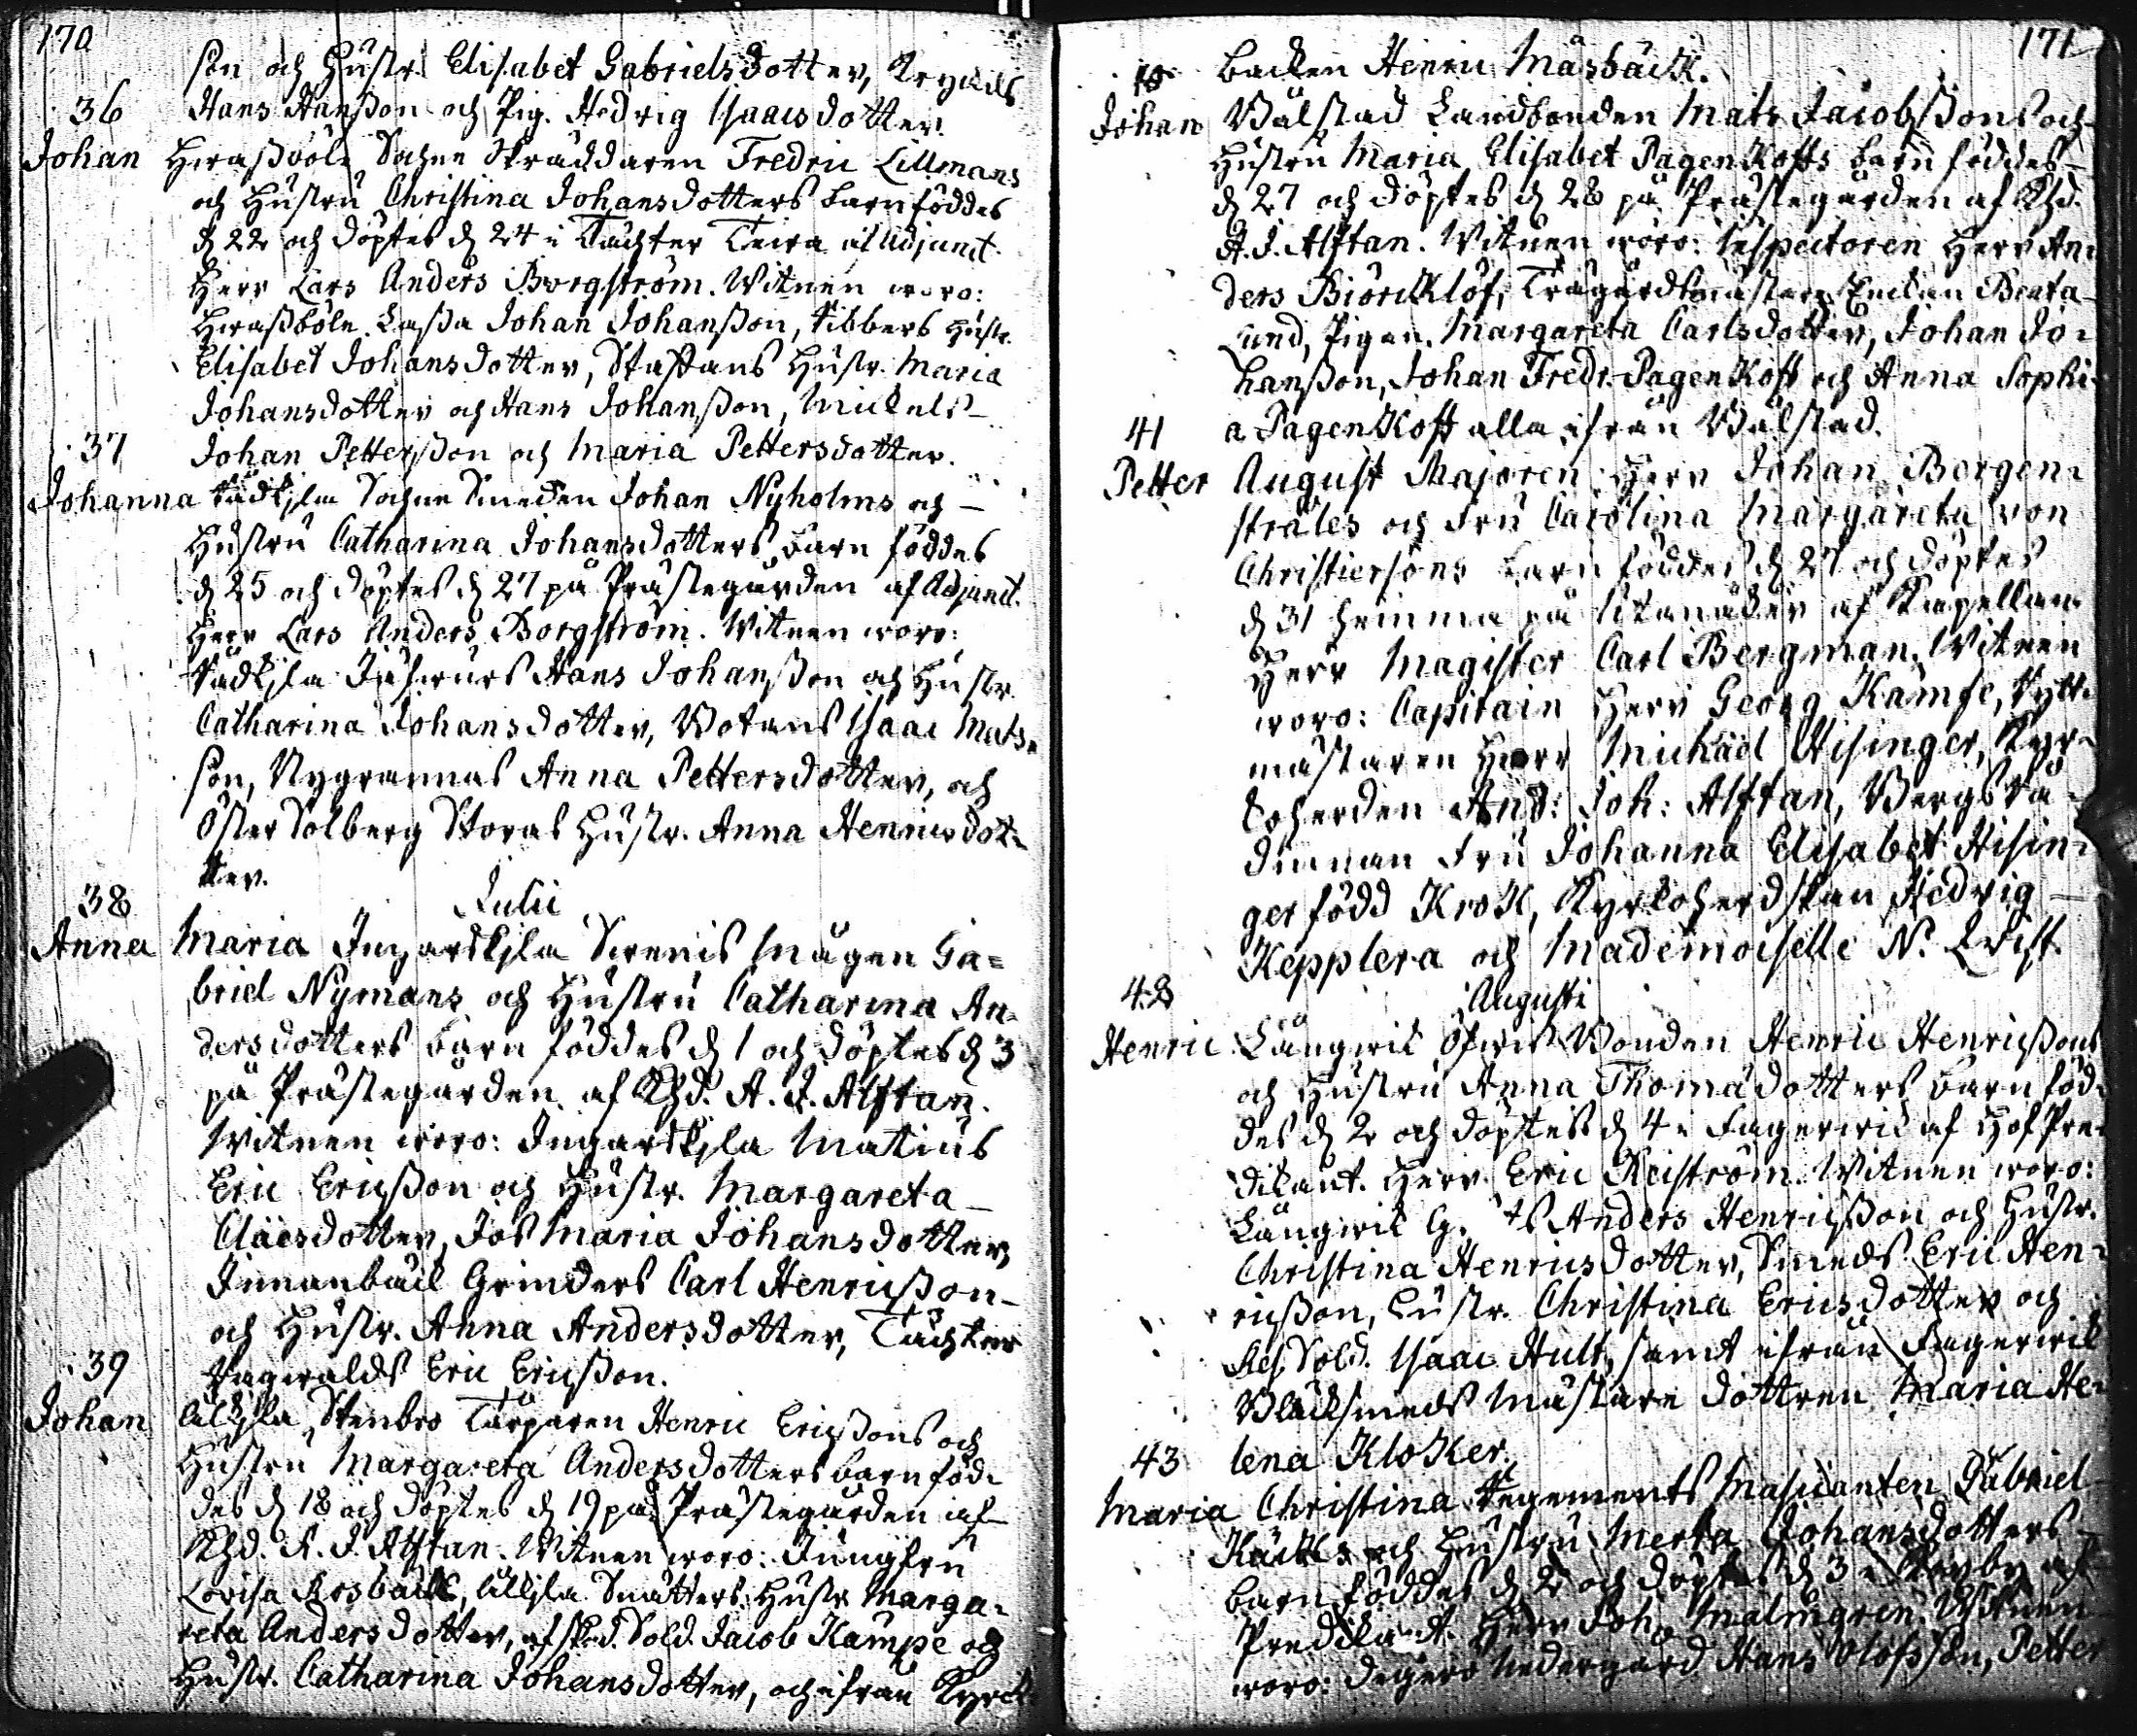 170
son och Hustr. Elisabet Gabrielsdotter,
36 Hans Hanßon och Pig. Hedvig Isaacsdotter.
Johan Sochne Skräddaren Fredric Lillmans
och Hustru Christina Johansdotters barn föddes
d 22 och döptes d 24 i Täckter af Adjunct.
Herr Lars Anders Borgström. Witnen woro:
Johan Johanßon, Tibbers Hustr.
Elisabet Johansdotter, Staffans Hustr. Maria
Johansdotter och Hans Johanßon, Mickels
37 Johan Petterßon och Maria Pettersdotter.
Johanna Sochne Smeden Johan Nyholms och
Hustru Catharina Johansdotters barn föddes
d 25 och döptes d 27 på Prästegården af Adjunct.
Herr Lars Anders Borgström. Witnen woro:
Hans Johanßon och Hustr.
Catharina Johansdotter, Isaac Mats-
son, Nygrannas Anna Pettersdotter, och
Öster Solberg Storas Hustr. Anna Henricsdot-
ter.
38 Julii
Anna Maria Mågen Ga=
briel Nymans och Hustru Catharina An-
dersdotters barn föddes d 1 och döptes d 3
på Prästegården af Khd. A. J. Alftan.
Witnen woro: Ingarskila Matius
Eric Ericßon och Hustr. Margareta
Claesdotter, Jos Maria Johansdotter,
Innanbäck Grinders Carl Henricßon
och Hustr. Anna Andersdotter, Täckter
39 Ragwalds Eric Ericßon.
Johan Stenbro Torparen Henric Ericßons och
Hustru Margareta Andersdotters barn föd-
des d 18 och döptes d 19 på Prästegården af
Khd. A. J. Alftan. Witnen woro: Jungfru
Lovisa Smätters Hustr. Marga-
reta Andersdotter, afsked. Sold. Jacob Kämpe och
Hustr. Catharina Johansdotter, och ifrån Kyrck
171
backen Henric Måsbäck.
Johan Wålstad Landbonden Mats Jacobßons och
Hustru Maria Elisabet Pagenkoffs barn föddes
d 27 och döptes d 28 på Prästegården af Khd.
A. J. Alftan. Witnen woro: Inspectoren Herr An-
ders Biörcklöf, Trägårdsmästare Enckan Beata
Lund, Pigan Margareta Carlsdotter, Johan Jo-
hanßon, Johan Fredr. Pagenkoff och Anna Sophi-
41 a Pagenkoff alla ifrån Wålstad.
Petter August Majoren Herr Johan Borgen-
stråles och Fru Carolina Margareta von
Christiersons barn föddes d 27 och döptes
d 31 hemma på af Kapellan
Herr Magister Carl Bergman. Witnen
woro: Capitain Herr Georg Kämpe, Rytt-
mästaren Herr Michäel Hisinger, Kyr-
koherden And: Joh: Alftan, Bergsrå-
dinnan Fru Johanna Elisabet Hisin-
ger född Krok, Kyrkoherdskan Hedvig
Kepplera och Mademoiselle N.
42 Augusti
Henric Långwik Bonden Henric Henricßons
och Hustru Anna Thomädotters barn föd-
des d 2 och döptes d 4 i Fagerwik af Hof Pre-
dikant. Herr Eric Reiström. Witnen woro:
Långwik Anders Henricßon och Hustr.
Christina Henricsdotter, Smeds Eric Hen-
ricßon, Hustr. Christina Ericsdotter och
Sold. Isaac Hult, samt ifrån Fagerwik
Bläcksmeds Mästare dottren Maria He-
43 lena Kloker.
Maria Christina Regements Musicanten Gabriel
och Hustru Merta Johansdotters
barn föddes d 2 och döptes d 3 i af
Predikant. Herr Joh. Malmgren. Witnen
woro: Degerö Nedergård Hans Olofsson, Petter